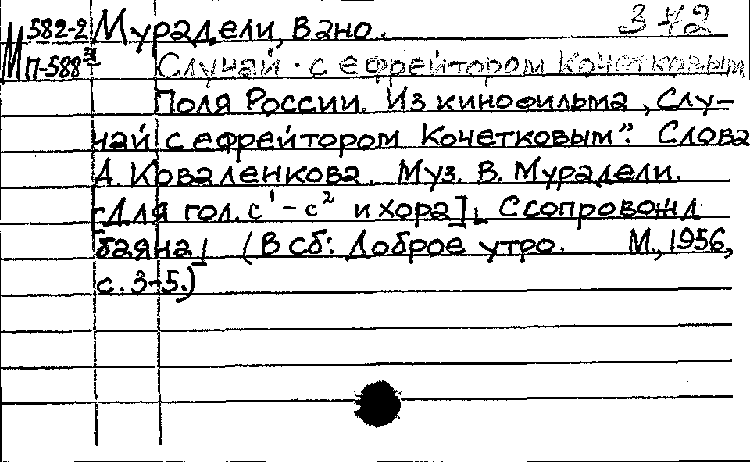 М 582-2 Мурадели, Вано. 3 42
П-588 Случай с ефрейтором Кочетковым
Поля России. Из кинофильма „Слу-
чай с ефрейтором Кочетковым". Слова
А. Коваленкова. Муз. В. Мурадели.
[Для гол. с¹ – с² и хора]. С сопровожд
баяна] (В сб: Доброе утро. М., 1956,
с. 3-5.)